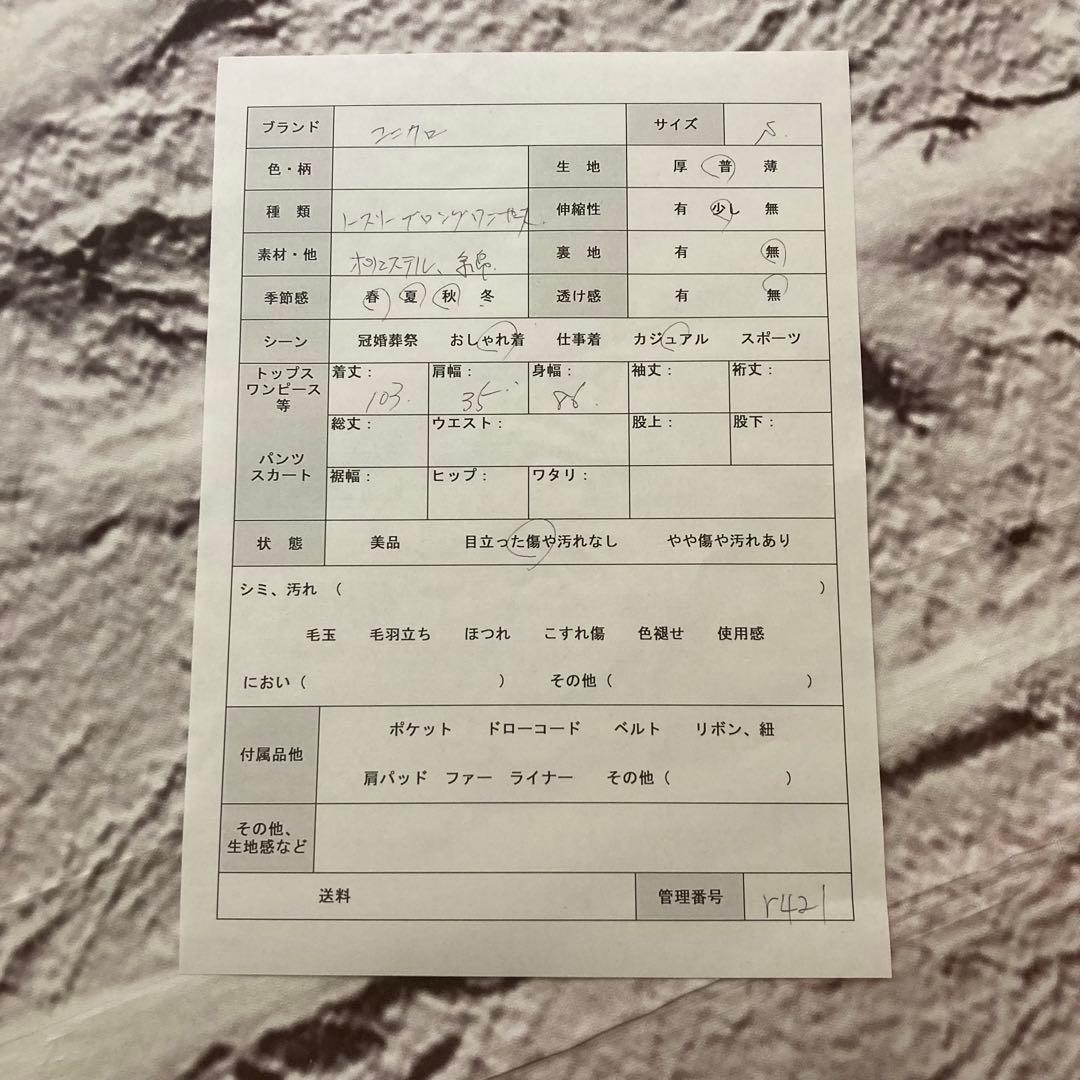 ブランド ユニクロ サイズ S.
色・柄 生 地 厚 普 薄
種 類 ノースリーブロングワンピース. 伸縮性 有 少し 無
素材・他 ポリエステル、綿. 裏 地 有 無
季節感 春 夏 秋 冬 透け感 有 無
シーン 冠婚葬祭 おしゃれ着 仕事着 カジュアル スポーツ
トップス
ワンピース
等
着丈： 肩幅： 身幅： 袖丈： 裄丈：
103. 35. 86.
パンツ
スカート
総丈： ウエスト： 股上： 股下：
裾幅： ヒップ： ワタリ：
状 態 美品 目立った傷や汚れなし やや傷や汚れあり
シミ、汚れ （ ）
毛玉 毛羽立ち ほつれ こすれ傷 色褪せ 使用感
におい（ ） その他（ ）
付属品他
ポケット ドローコード ベルト リボン、紐
肩パッド ファー ライナー その他（ ）
その他、
生地感など
送料 管理番号 r421